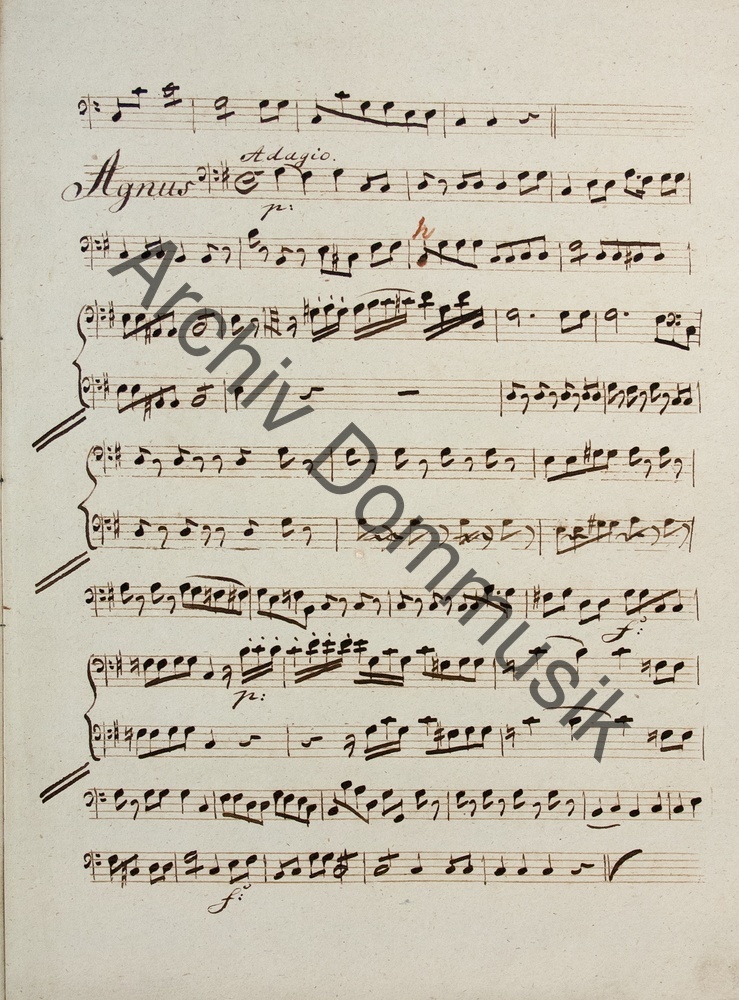 Adagio.
Agnus
p:
f:
p:
f:
Archiv Dommusik